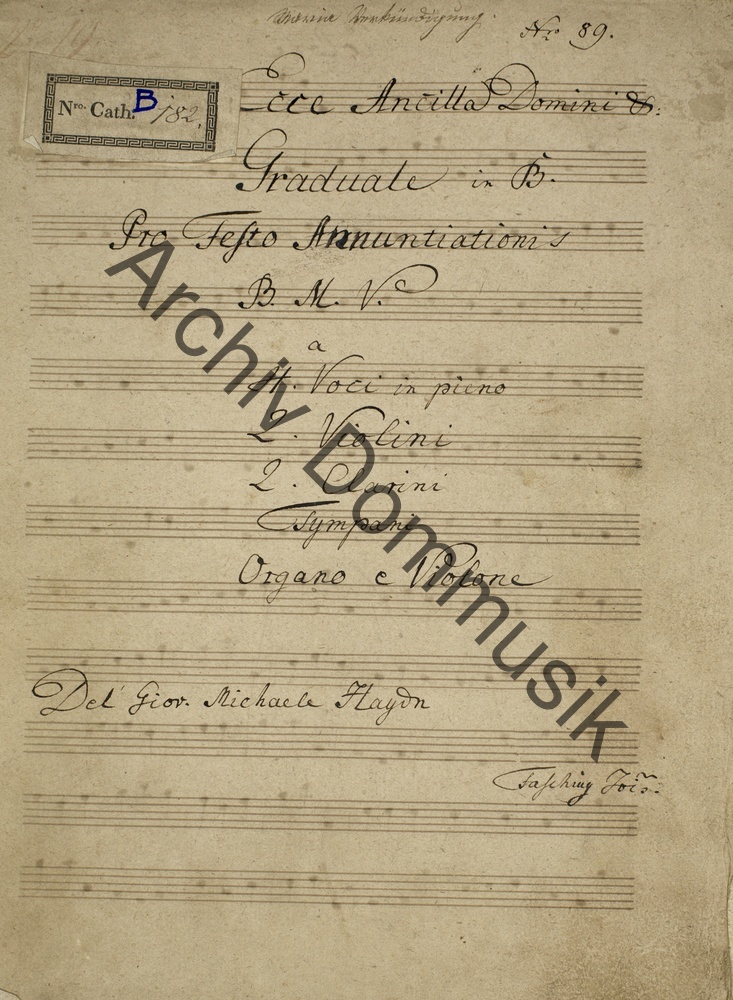 Maria Verkündigung.
Nro 89.
Nro. Cath. B 182.
Ecce Ancilla Domini &.
Graduale in B.
Pro Festo Annuntiationis
B. M. V.
a
4. Voci in pieno
2. Violini
2. Clarini
Tympani
Organo e Violone
Del' Giov. Michaele Haydn
Fasching Jois.
Archiv Dommusik